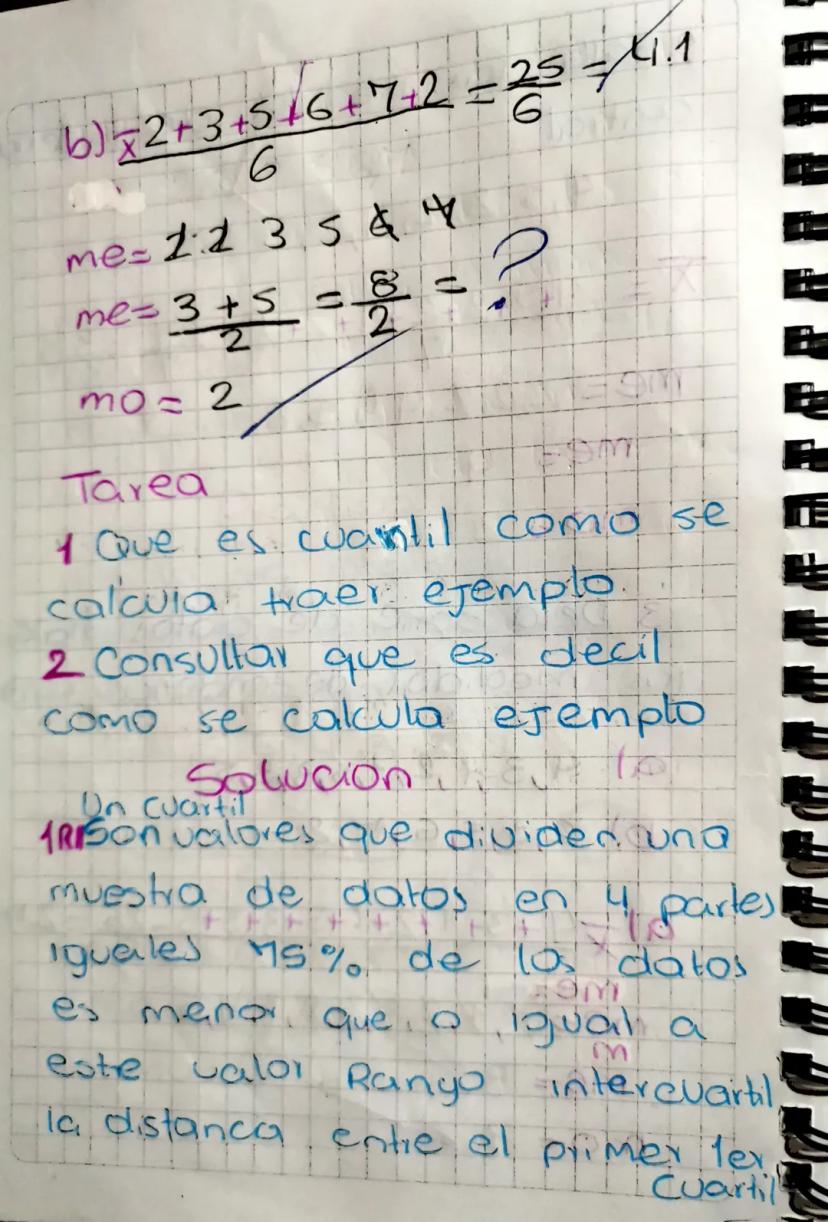 b) x̄ 2+3+5+6+7+2 = 25 = 4.1
6 6
me= 2 2 3 5 6 7
me= 3 + 5 = 8 = ?
2 2
mo = 2
Tarea
1 Que es cuantil como se
calcula traer ejemplo.
2 Consultar que es decil
como se calcula ejemplo
Solucion
Un cuartil
1R/ Son valores que dividen una
muestra de datos en 4 partes
iguales 75% de los datos
es menor que o igual a
este valor Rango intercuartil
la distanca entre el primer 1er
cuartil